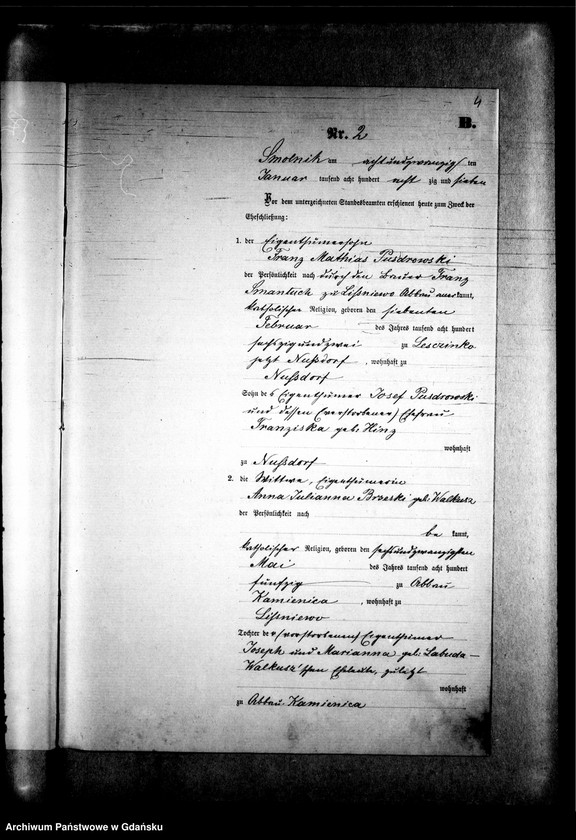 4
B.
Nr. 2
Smolnik am achtundzwanzig ten
Januar tausend acht hundert acht zig und sieben
Vor dem unterzeichneten Standesbeamten erschienen heute zum Zweck der
Eheschließung:
1. der Eigenthümersohn
Franz Mathias Pusdrowski
der Persönlichkeit nach durch den Bauer Franz
Smantuch zu Lissniewo Abbau anerkannt,
katholischer Religion, geboren den siebenten
Februar des Jahres tausend acht hundert
sechszigundzwei zu Lesczinko
jetzt Nußdorf, wohnhaft zu
Nußdorf
Sohn des Eigenthümer Josef Pusdrowski
und dessen (verstorbener) Ehefrau
Franziska geb: Hinz
wohnhaft
zu Nußdorf
2. die Wittwe, Eigenthümerin
Anna Julianna Brzeski geb: Walkusz
der Persönlichkeit nach
be kannt,
katholischer Religion, geboren den sechsundzwanzigsten
Mai des Jahres tausend acht hundert
fünfzig zu Abbau
Kamienica, wohnhaft zu
Lissniewo
Tochter der (verstorbenen) Eigenthümer
Joseph und Marianna geb: Labuda-
Walkusz'schen Eheleute, zuletzt
wohnhaft
zu Abbau-Kamienica
Archiwum Państwowe w Gdańsku